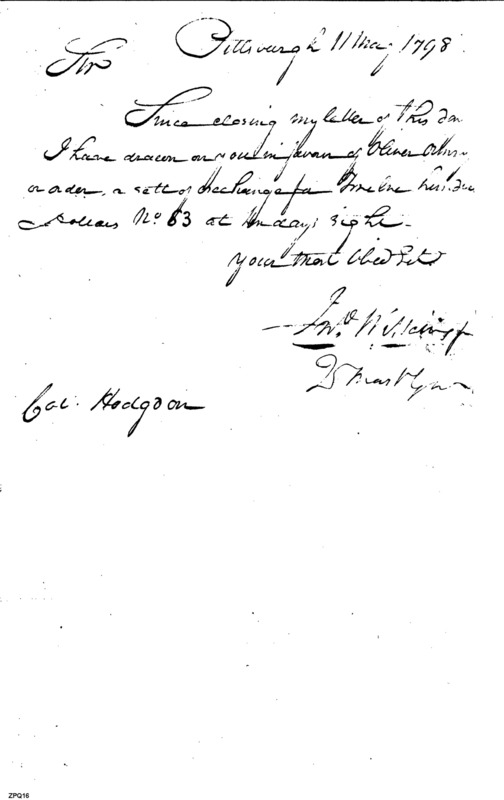 Pittsburgh 11 May 1798
Sir
Since closing my letter of this day
I have drawn on you in favour of Oliver Ormsby
or order, a sett of exchange for Twelve hundred
Dollars No. 63 at ten days sight.
Your most Obed Servt
Jno. Wilkins Jr
Col. Hodgdon
ZPQ16